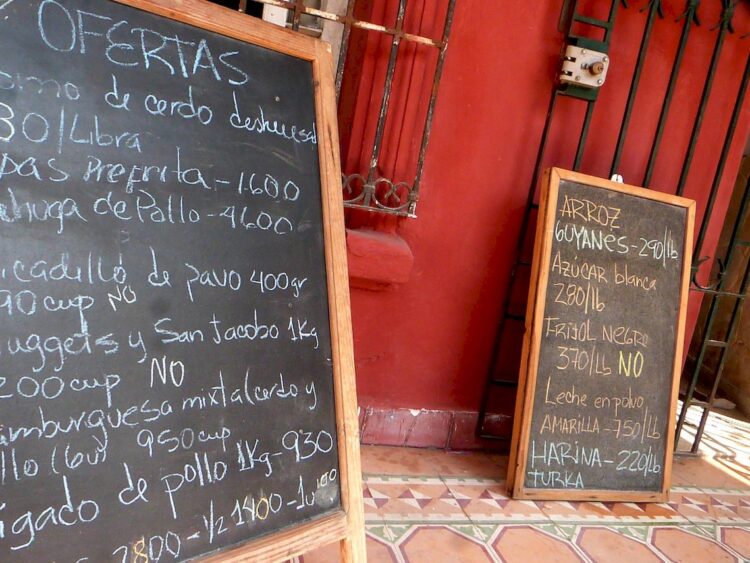 OFERTAS
de cerdo deshuesad
30/Libra
Prefrita-1.600
de Pollo-4600
de pavo 400gr
90cup NO
uggets y San Jacobo 1Kg
200cup NO
amburguesa mixta (cerdo y
llo (6u) 950cup
igado de pollo 1Kg-930
2800-1/2 1400-1u 100
ARROZ
GUYANES-290/lb
Azúcar blanca
280/lb
FRIJOL NEGRO
370/lb NO
Leche en polvo
AMARILLA-750/lb
HARINA-220/lb
TURKA